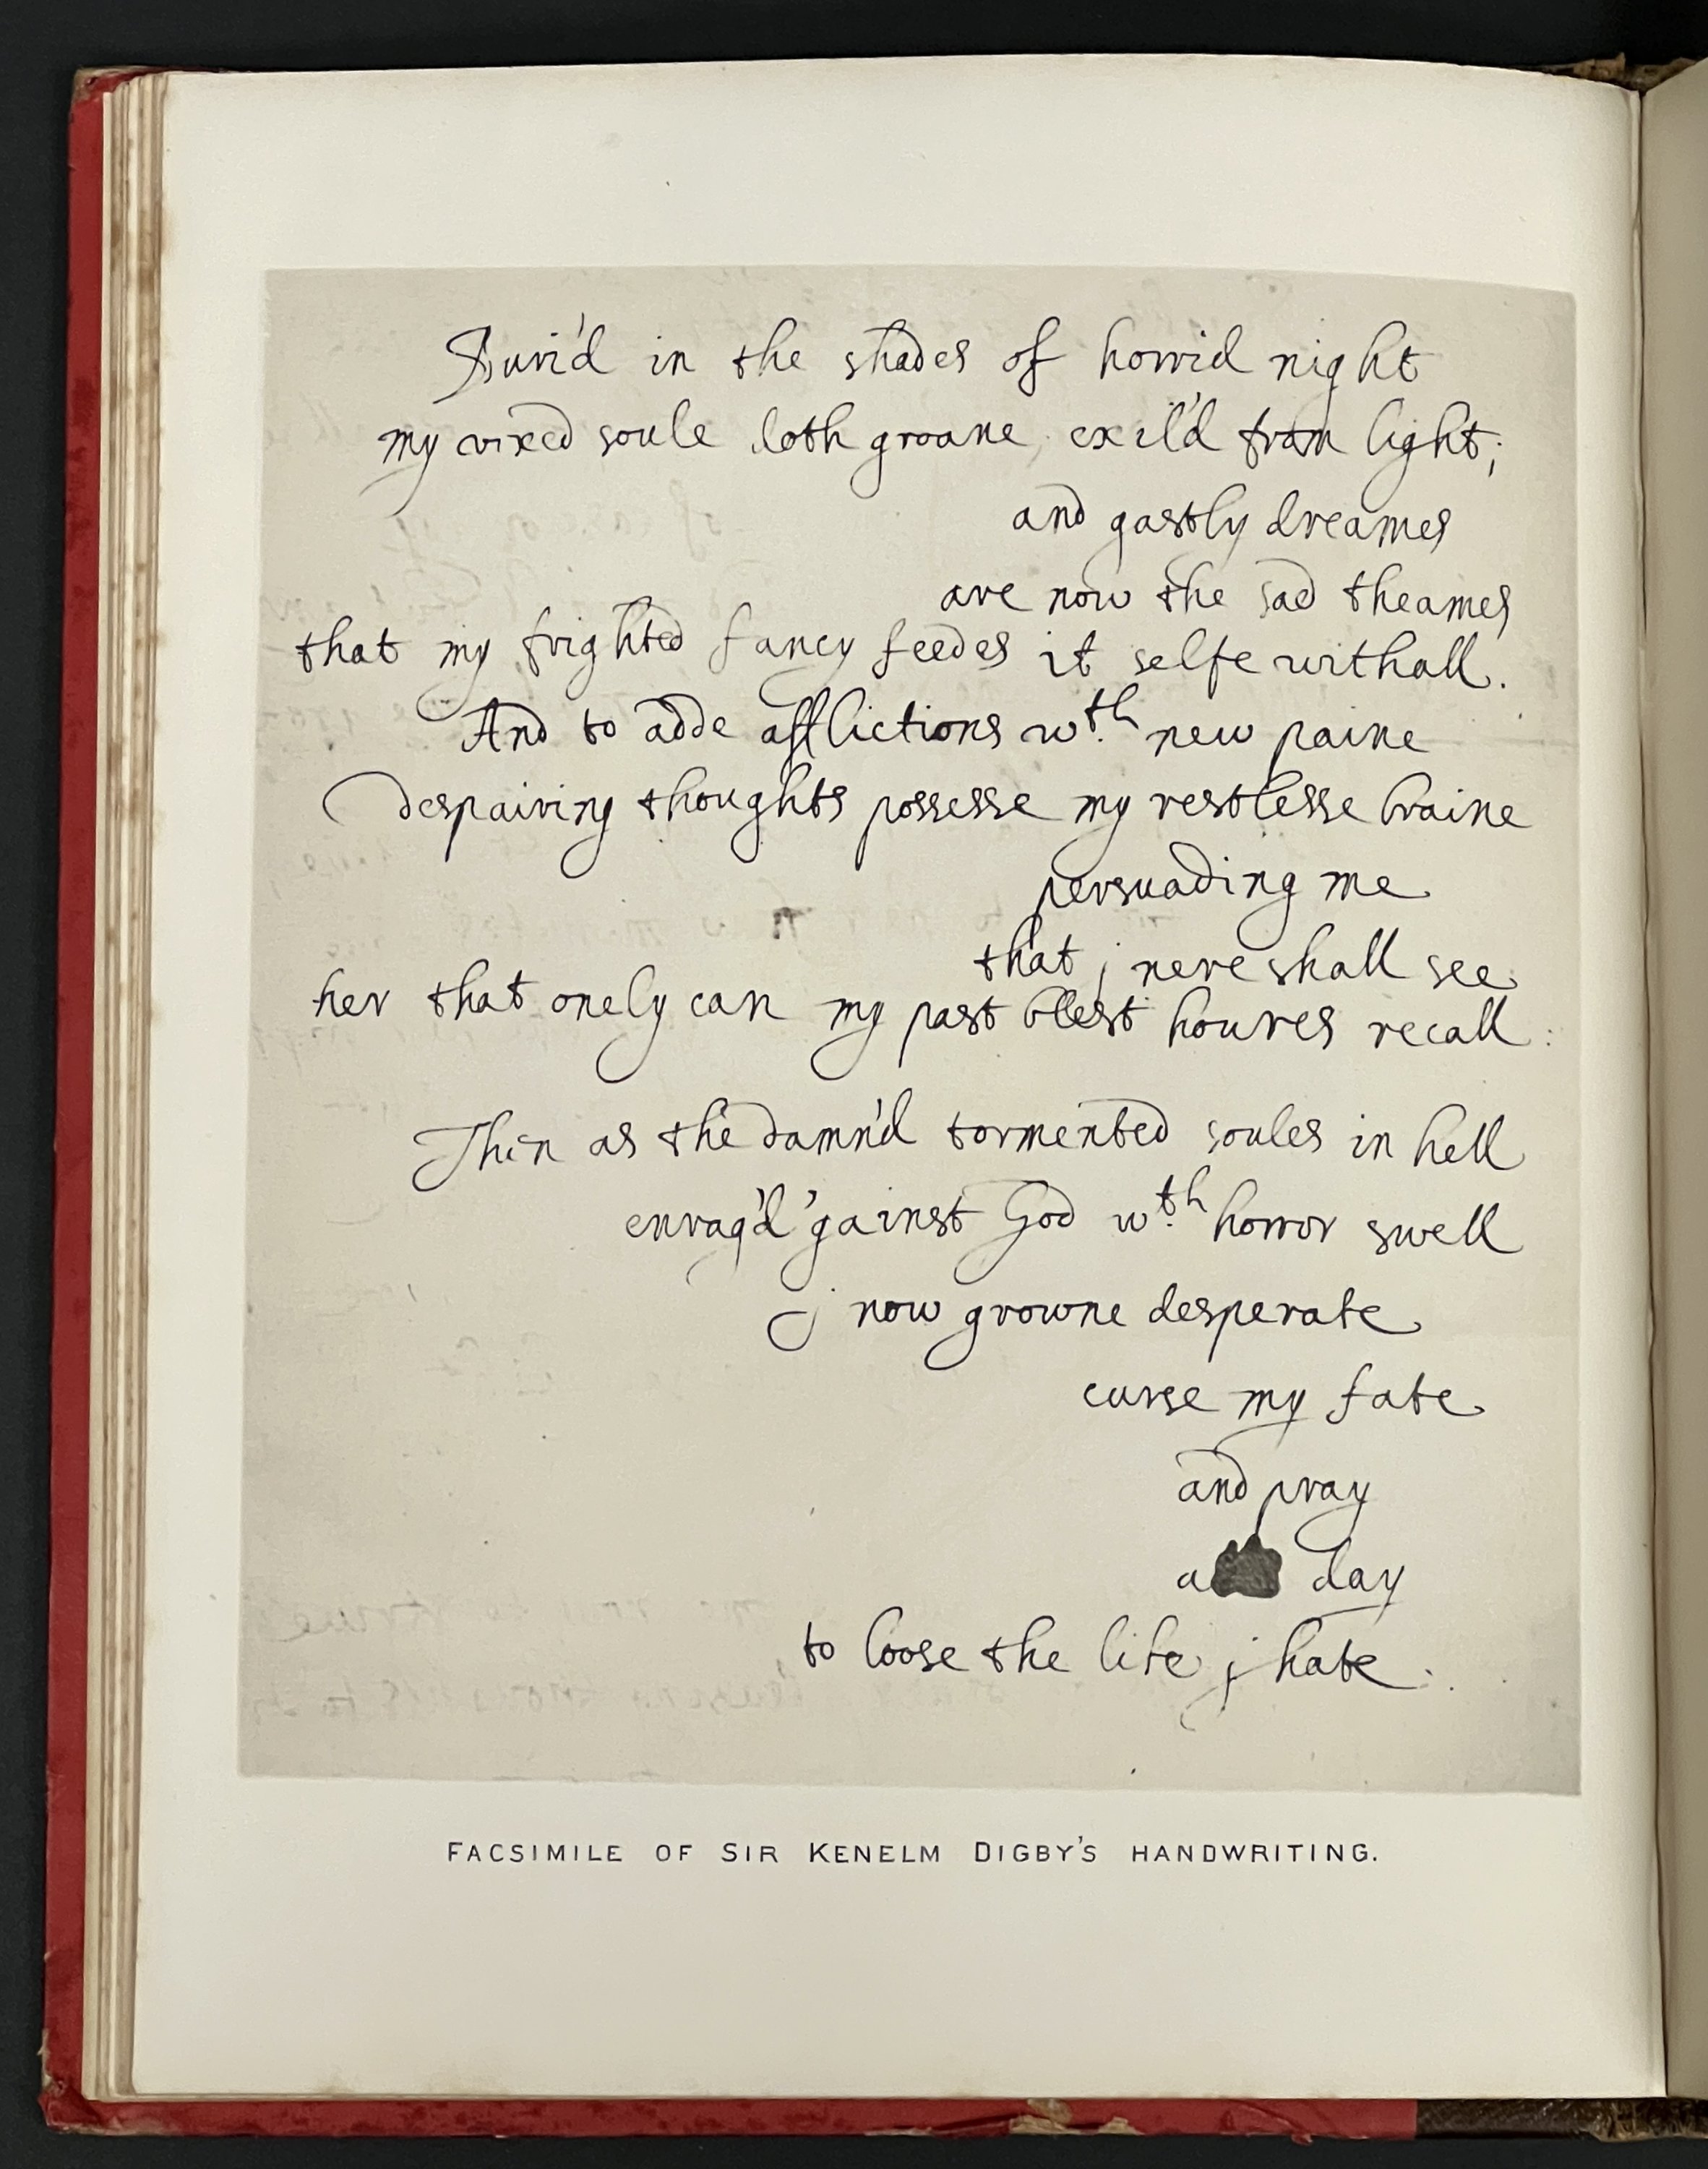 Buri'd in the shades of horrid night
my vexed soule doth groane, exil'd from light;
and gastly dreames
are now the sad theames
that my frighted fancy feedes it selfe withall.
And to adde afflictions wth new paine
despairing thoughts possesse my restlesse braine
persuading me
that j nere shall see
her that onely can my past blest houres recall:
Then as the damn'd tormented soules in hell
enrag'd 'gainst God wth horror swell
j now growne desperate
curse my fate
and pray
day
to loose the life j hate.
FACSIMILE OF SIR KENELM DIGBY'S HANDWRITING.